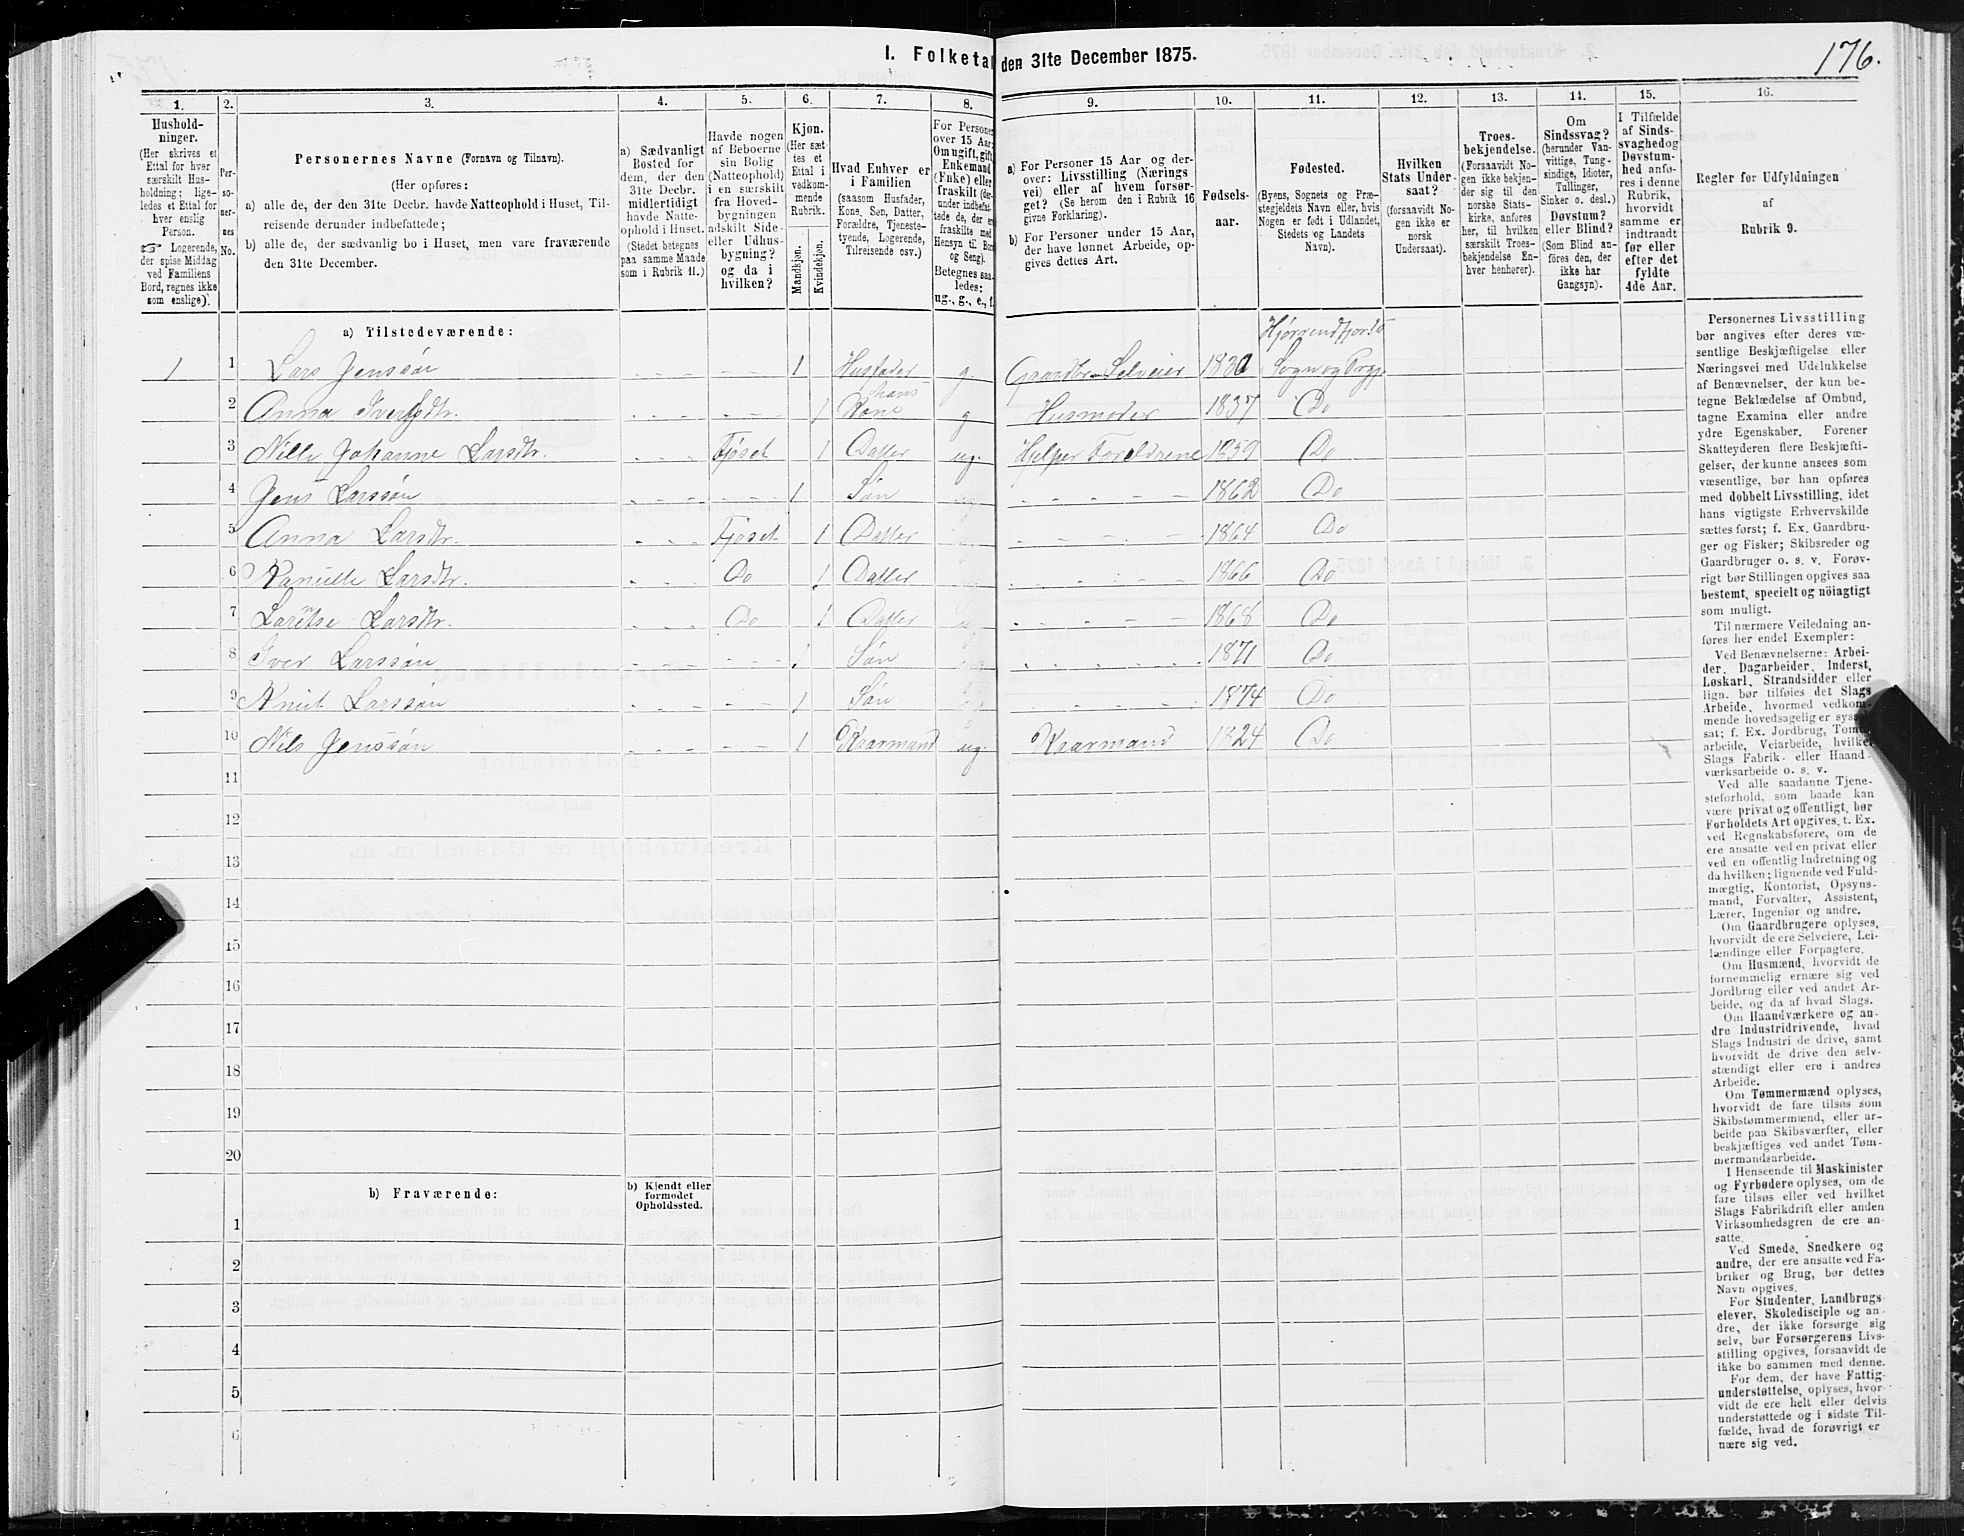 176.
I. Folketal den 31te December 1875.
1. 2. 3. 4. 5. 6. 7. 8. 9. 10. 11. 12. 13. 14. 15. 16.
Husholdninger.
(Her skrives et
Ettal for hver
særskilt Husholdning;
ligeledes et Ettal for
hver enslig
Person.
☞ Logerende,
der spise Middag
ved Familiens
Bord, regnes ikke
som enslige).
Personernes No.
Personernes Navne (Fornavn og Tilnavn).
(Her opføres:
a) alle de, der den 31te Decbr. havde Natteophold i Huset, Tilreisende
derunder indbefattede;
b) alle de, der sædvanlig bo i Huset, men vare fraværende
den 31te December.
a) Sædvanligt
Bosted for
dem, der den
31te Decbr.
midlertidigt
havde Natteophold
i Huset.
(Stedet betegnes
paa samme Maade
som i Rubrik 11.)
Havde nogen
af Beboerne
sin Bolig
(Natteophold)
i en særskilt
fra Hovedbygningen
adskilt Side-
eller Udhusbygning?
og da i
hvilken?
Kjøn.
(Her sættes
et
Ettal i
vedkommende
Rubrik.
Mandkjøn.
Kvindekjøn.
Hvad Enhver er
i Familien
(saasom Husfader,
Kone, Søn, Datter,
Forældre, Tjenestetyende,
Logerende,
Tilreisende osv.)
For Personer
over 15 Aar:
Om ugift, gift,
Enkemand
(Enke) eller
fraskilt (derunder
indbefattede
de, der ere
fraskilte med
Hensyn til Bord
og Seng).
Betegnes saaledes:
ug., g., e., f.
a) For Personer 15 Aar og derover:
Livsstilling (Næringsvei)
eller af hvem forsørget?
(Se herom den i Rubrik 16
givne Forklaring).
b) For Personer under 15 Aar,
der have lønnet Arbeide, opgives
dettes Art.
Fødselsaar.
Fødested.
(Byens, Sognets og Præstegjeldets
Navn eller, hvis
Nogen er født i Udlandet,
Stedets og Landets
Navn).
Hvilken
Stats Undersaat?
(forsaavidt Nogen
ikke er
norsk
Undersaat).
Troesbekjendelse.
(Forsaavidt Nogen
ikke bekjender
sig til den
norske Statskirke,
anføres
her, til hvilken
særskilt Troesbekjendelse
Enhver
henhører).
Om
Sindssvag?
(herunder Vanvittige,
Tungsindige,
Idioter,
Tullinger,
Sinker o. desl.)
Døvstum?
eller Blind?
(Som Blind anføres
den, der
ikke har
Gangsyn).
I Tilfælde
af Sindssvaghed
og
Døvstumhed
anføres
i denne
Rubrik,
hvorvidt
samme er
indtraadt
før eller
efter det
fyldte
4de Aar.
Regler for Udfyldningen
af
Rubrik 9.
a) Tilstedeværende:
1 1 Lars Jenssøn 1 Husfader g Gaardbr. Selveier 1830 Sogn og Prgj.
2 Anna Iversdtr. 1 hans Kone g Husmoder 1837 Do
3 Nille Johanne Larsdtr. Fjøset 1 Datter ug. Hjelper Foreldrene 1859 Do
4 Jens Larssøn 1 Søn 1862 Do
5 Anna Larsdtr. Fjøset 1 Datter 1864 Do
6 Larsdtr. Do 1 Datter 1866 Do
7 Larsdtr. Do 1 Datter 1868 Do
8 Iver Larssøn 1 Søn 1871 Do
9 Knut Larssøn 1 Søn 1874 Do
10 Nils Jenssøn 1 Kaarmand ug. Kaarmand 1824 Do
11
12
13
14
15
16
17
18
19
20
b) Fraværende:
b) Kjendt eller
formodet
Opholdssted.
1
2
3
4
5
6
Personernes Livsstilling
bør angives efter deres væsentlige
Beskjæftigelse eller
Næringsvei med Udelukkelse
af Benævnelser, der kun betegne
Beklædelse af Ombud,
tagne Examina eller andre
ydre Egenskaber. Forener
Skatteyderen flere Beskjæftigelser,
der kunne ansees som
væsentlige, bør han opføres
med dobbelt Livsstilling, idet
hans vigtigste Erhvervskilde
sættes først; f. Ex. Gaardbruger
og Fisker; Skibsreder og
Gaardbruger o. s. v. Forøvrigt
bør Stillingen opgives saa
bestemt, specielt og nöiagtigt
som muligt.
Til nærmere Veiledning anføres
her endel Exempler:
Ved Benævnelserne: Arbeider,
Dagarbeider, Inderst,
Løskarl, Strandsidder eller
lign. bør tilføies det Slags
Arbeide, hvormed vedkommende
hovedsagelig er sysselsat;
f. Ex. Jordbrug, Tømmerarbeide,
Veiarbeide, hvilket
Slags Fabrik- eller Haandværksarbeide
o. s. v.
Ved alle saadanne Tjenesteforhold,
som baade kan
være privat og offentligt, bør
Forholdets Art opgives, t. Ex.
ved Regnskabsførere, om de
ere ansatte ved en privat eller
ved en offentlig Indretning og
da hvilken; lignende ved Fuldmægtig,
Kontorist, Opsynsmand,
Forvalter, Assistent,
Lærer, Ingeniør og andre.
Om Gaardbrugere oplyses,
hvorvidt de ere Selveiere, Leilændinge
eller Forpagtere.
Om Husmænd, hvorvidt de
fornemmelig ernære sig ved
Jordbrug eller ved andet Arbeide,
og da af hvad Slags.
Om Haandværkere og andre
Industridrivende, hvad
Slags Industri de drive, samt
hvorvidt de drive den selvstændigt
eller ere i andres
Arbeide.
Om Tømmermænd oplyses,
hvorvidt de fare tilsøs som
Skibstømmermænd, eller arbeide
paa Skibsværfter, eller
beskjæftiges ved andet Tømmermandsarbeide.
I Henseende til Maskinister
og Fyrbødere oplyses, om de
fare tilsøs eller ved hvilket
Slags Fabrikdrift eller anden
Virksomhedsgren de ere ansatte.
Ved Smede, Snedkere og
andre, der ere ansatte ved Fabriker
og Brug, bør dettes
Navn opgives.
For Studenter, Landbrugselever,
Skoledisciple og andre,
der ikke forsørge sig
selv, bør Forsørgerens Livsstilling
opgives, forsaavidt de
ikke bo sammen med denne.
For dem, der have Fattigunderstøttelse,
oplyses, hvorvidt
de ere helt eller delvis
understøttede og i sidste Tilfælde,
hvad de forøvrigt ernære
sig ved.